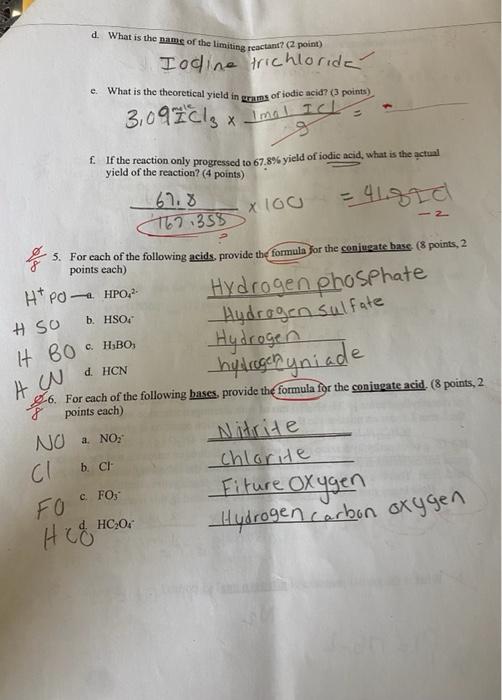 d. What is the name of the limiting reactant? (2 point)
Iodine trichloride
e. What is the theoretical yield in grams of iodic acid? (3 points)
3.09 mole ICl3 x 1mol ICl / g = -
f. If the reaction only progressed to 67.8% yield of iodic acid, what is the actual
yield of the reaction? (4 points)
67.8 / 167.358 x 100 = 41.
?
-2
0/8 5. For each of the following acids, provide the formula for the conjugate base. (8 points, 2
points each)
H+ PO a. HPO₄²⁻ Hydrogen phosphate
H SO b. HSO₄⁻ Hydrogen sulfate
H BO c. H₃BO₃ Hydrogen
H CN d. HCN hydrogen cyniade
0/8 6. For each of the following bases, provide the formula for the conjugate acid. (8 points, 2
points each)
NO a. NO₂⁻ Nitrite
Cl b. Cl⁻ Chlorite
FO c. FO₃⁻ Fiture Oxygen
HCO d. HC₂O₄⁻ Hydrogen carbon oxygen